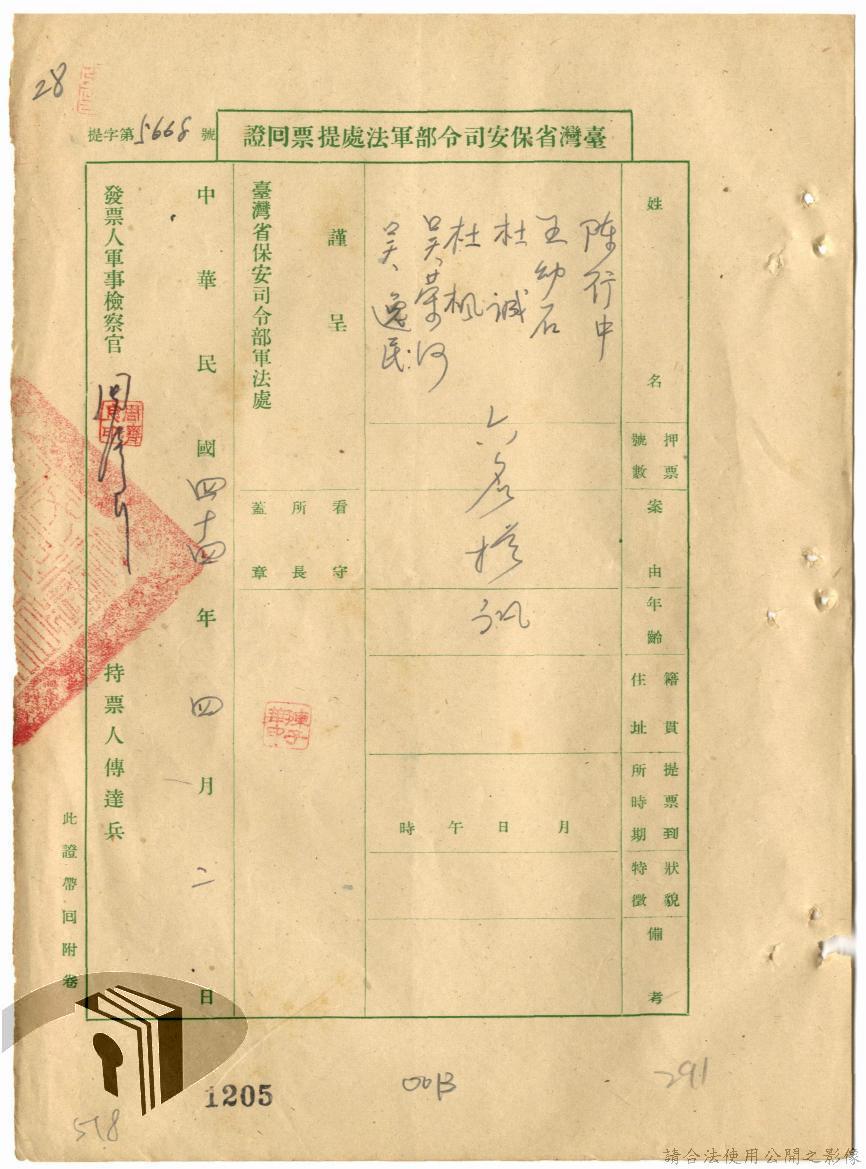 28
提字第5668號
臺灣省保安司令部軍法處提票回證
姓名
陳行中
王幼石
杜誠
杜楓
吳榮河
吳逸民
押票號數
案由
六名
年齡
籍貫住址
提票到所時期
月日午時
狀貌特徵
備考
謹呈
臺灣省保安司令部軍法處
看守所長蓋章
中華民國四十四年四月二日
發票人軍事檢察官
持票人傳達兵
此證帶回附卷
1205
00B
291
578
請合法使用公開之影像